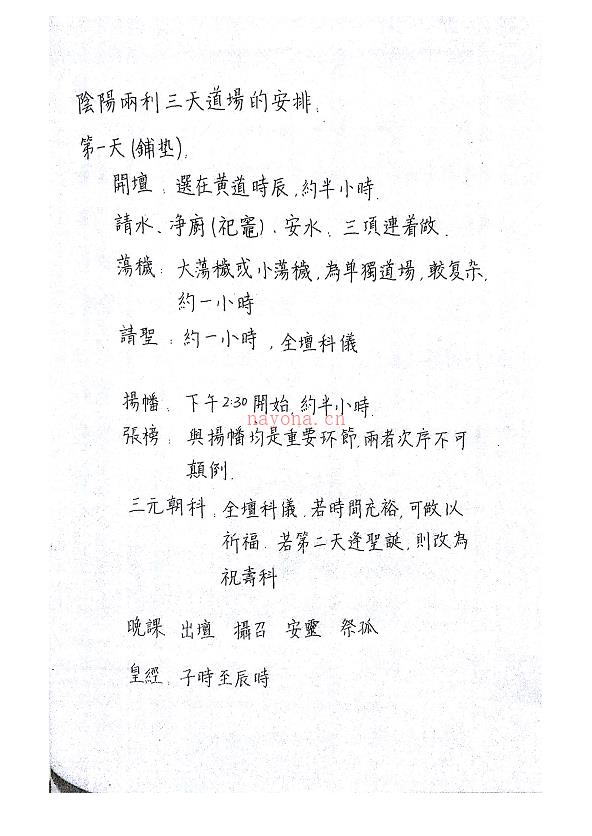 陰陽兩利三天道場的安排.
第一天(鋪垫).
開壇：選在黄道時辰，約半小時.
請水、净廚(祀竈)、安水、三項連着做.
蕩穢：大蕩穢或小蕩穢，為单獨道場，較复杂，
約一小時
請聖：約一小時，全壇科儀
揚幡、下午2:30開始，約半小時.
navona.cn
張榜：與揚幡均是重要环節，兩者次序不可
顛倒.
三元朝科：全壇科儀.若時間充裕，可做以
祈福.若第二天逢聖誕，則改為
祝壽科
晚課 出壇 攝召 安靈 祭孤
皇經：子時至辰時